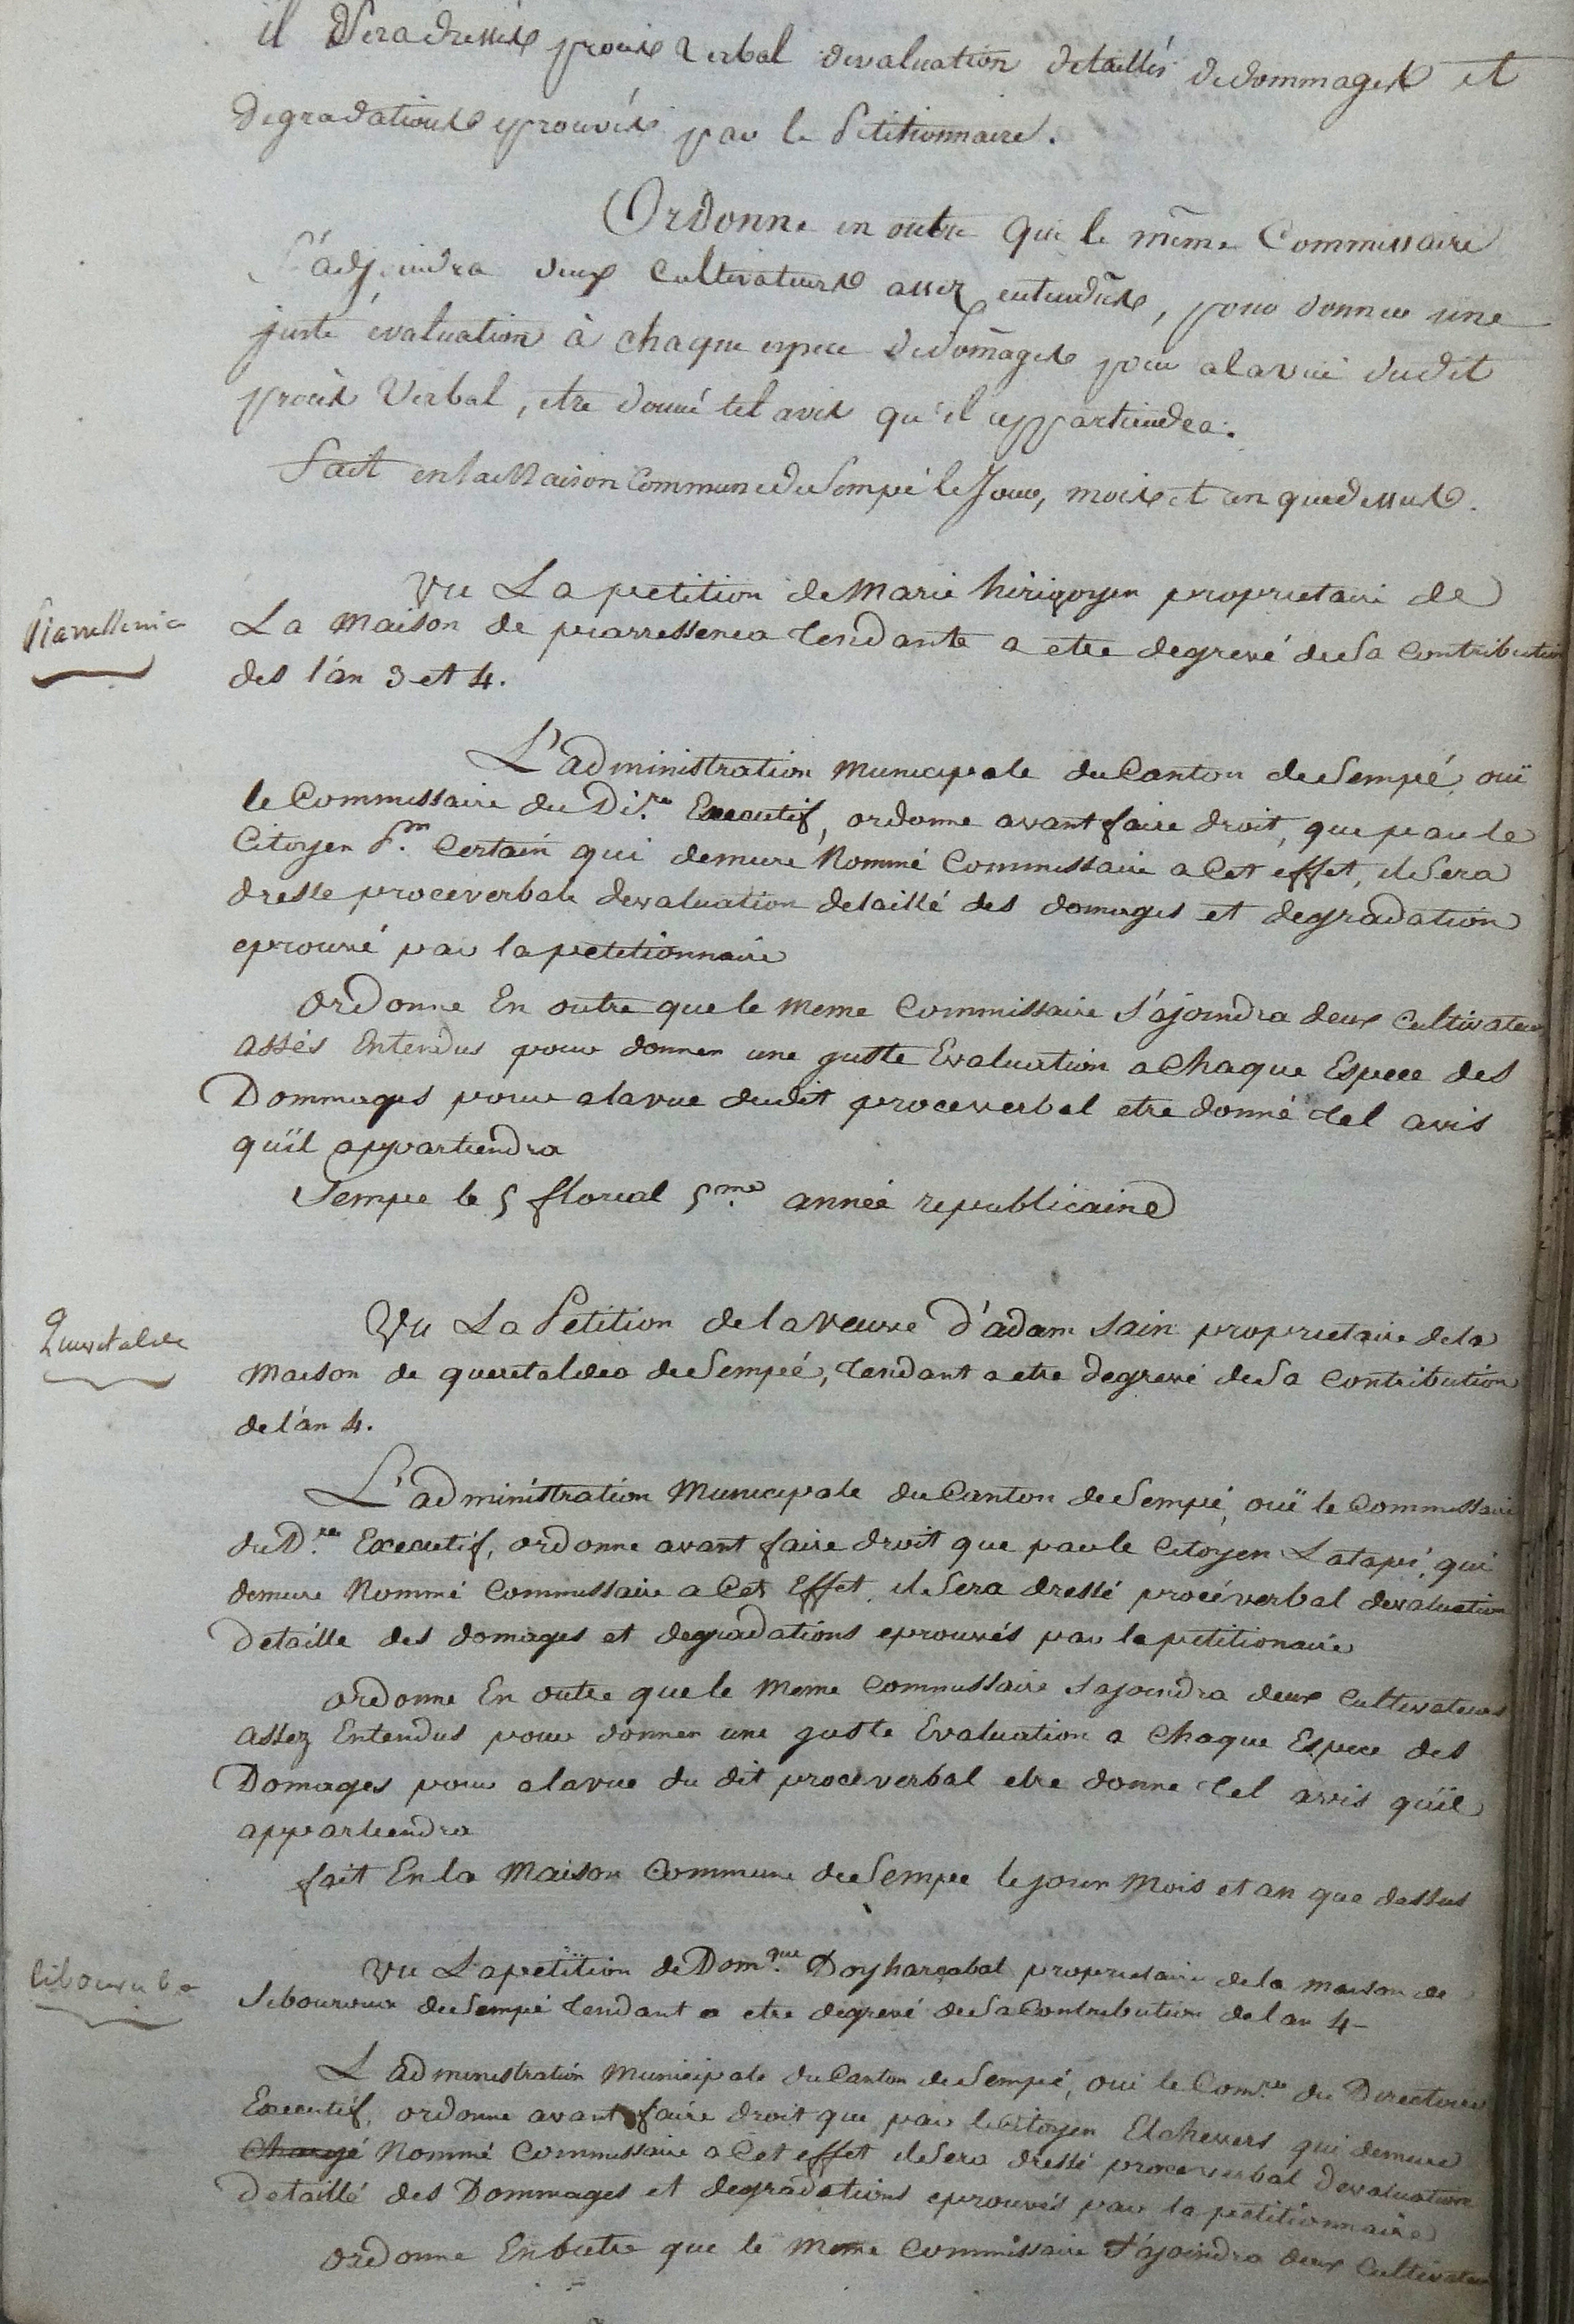 il Sera dressés procés verbal devaluation detaillés de dommages et
degradations eprouvés par le Petitionnaire.
Ordonne en outre que le même Commissaire
S'adjoindra deux Cultivateurs assez entendus, pour donner une
juste évaluation à chaque espece de Domages pour a la vue dudit
procès Verbal, etre donné tel avis qu'il appartiendra.
Fait en la Maison Commune de Sempé le Jour, mois et an que dessus.
Vu La petition de Marie hirigoyen proprietaire de
Piarressenia
La Maison de piarressenea tendante a etre degrevé de Sa Contribution
des l'an 3 et 4.
L'administration Municipale du Canton de Sempé, ouï
le Commissaire du Di.re Executif, ordonne avant faire droit, que par le
Citoyen P.m Certain qui demure Nommé Commissaire a Cet effet, il Sera
dresse proceverbale devaluation detaillé des domages et degradation
eprouvé par la petitionnaire
ordonne En outre que le Meme Commissaire S'ajoindra deux Cultivateurs
assés Entendus pour donner une guste Evaluation a Chaque Espece des
Dommages pour a la vue dudit proceverbal etre donné tel avis
quïl appartiendra
Sempe le 5 floreal 5.me année republicaine
Queretaldea
Vu La Petition de la veuve d'adam Sain proprietaire de la
Maison de queretaldea de Sempé, tendant a etre degrevé de Sa Contribution
de l'an 4.
L'administration Municipale du Canton de Sempé, ouï le Commissaire
du D.re Executif, ordonne avant faire droit que par le Citoyen Latapé, qui
demure Nommé Commissaire a Cet Effet, il Sera dressé procéverbal devaluation
Detaille des domages et degradations eprouvés par la petitionaire
ordonne En outre que le Meme Commissaire Sajoindra deux Cultivateurs
assez Entendus pour donner une guste Evaluation a Chaque Espece des
Domages pour a la vue du dit proceverbal etre donne tel avis quïl
appartiendra
fait En la Maison Commune de Sempee le jour Mois et an que dessus
Vu La petition de Dom.que Doyharçabal proprietaire de la maison de
Sempé tendant a etre degrevé de Sa Contribution de lan 4-
L'administration Municipale du Canton de Sempé, oui le Com.re du Directoire
Executif, ordonne avant faire droit que par le Citoyen Etchevers qui demure
Chargé Nommé Commissaire a Cet effet il Sera dressé proceverbal devaluation
Detaillé des Dommages et degradations eprouvés par la petitionnaire
ordonne En outre que le Meme Commissaire S'ajoindra deux Cultivateurs